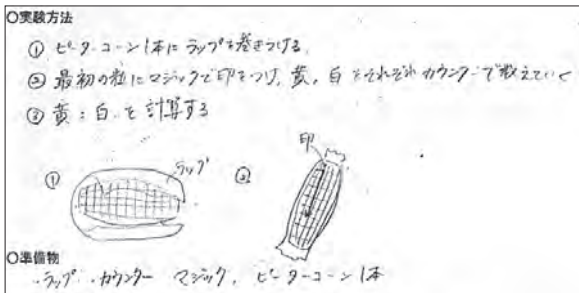 ○実験方法
① ピーターコーン1本にラップを巻きつける。
② 最初の粒にマジックで印をつけ、黄、白をそれぞれカウンターで数えていく
③ 黄:白 を計算する
① ラップ
② 印
○準備物
・ラップ ・カウンター マジック、ピーターコーン1本